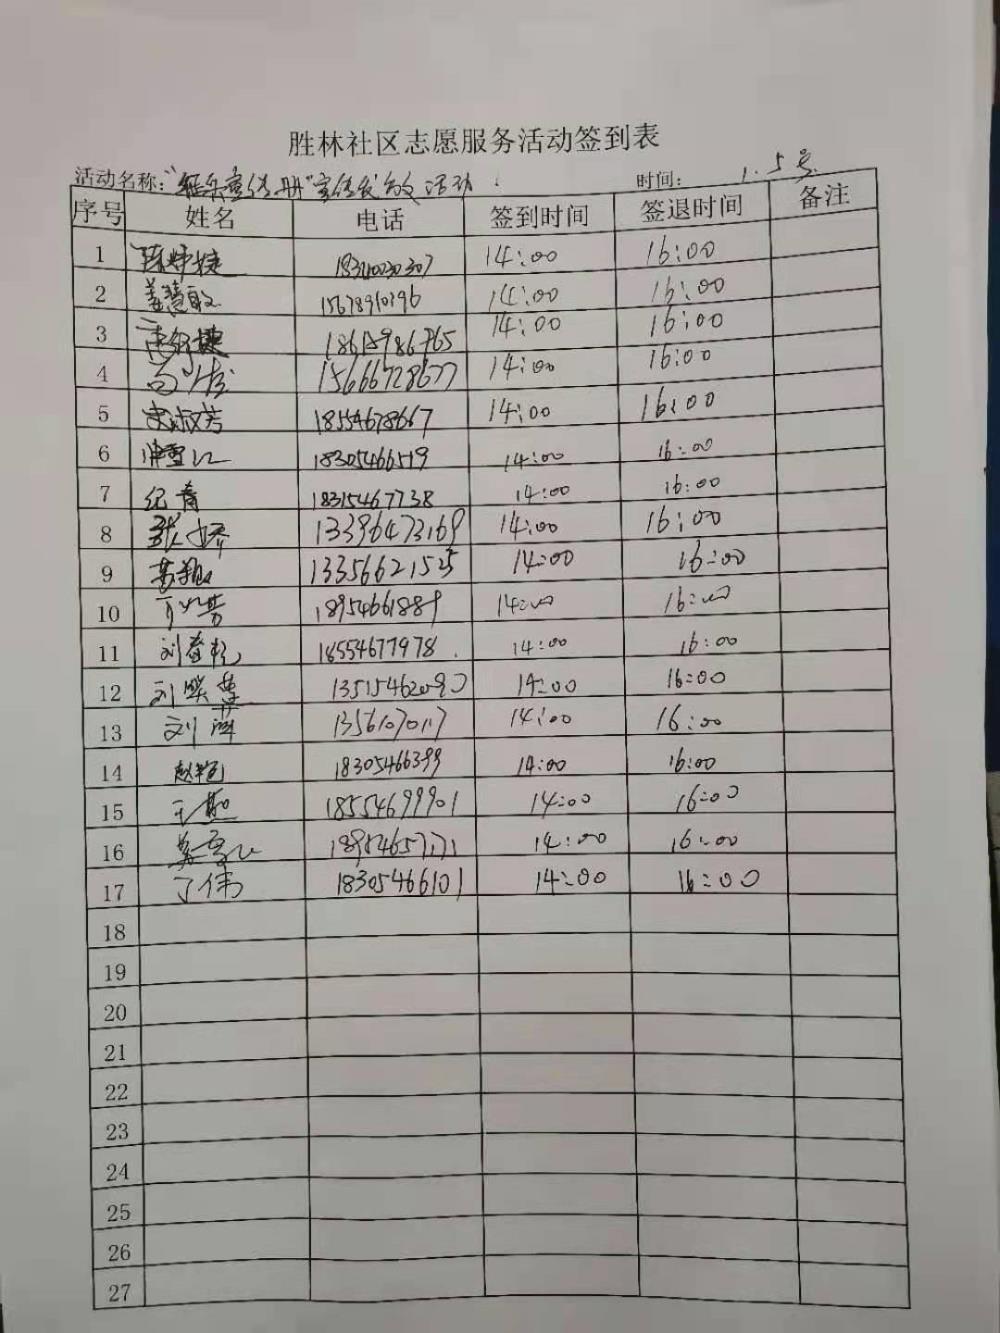 胜林社区志愿服务活动签到表
活动名称："宣传册"宣传发放活动 时间： 1.5号
序号 姓名 电话 签到时间 签退时间 备注
1 18310030307 14:00 16:00
2 姜慧敏 15678910196 14:00 16:00
3 14:00 16:00
4 15666728677 14:00 16:00
5 宋淑芳 18554678667 14:00 16:00
6 18305466519 14:00 16:00
7 纪青 18315467738 14:00 16:00
8 张娇 13396473169 14:00 16:00
9 13356621525 14:00 16:00
10 18954661889 14:00 16:00
11 刘春乾 18554677978 14:00 16:00
12 刘 13515462090 14:00 16:00
13 刘萍 13561070117 14:00 16:00
14 赵艳 18305466399 14:00 16:00
15 王 18554699901 14:00 16:00
16 18954657171 14:00 16:00
17 丁伟 18305466101 14:00 16:00
18
19
20
21
22
23
24
25
26
27